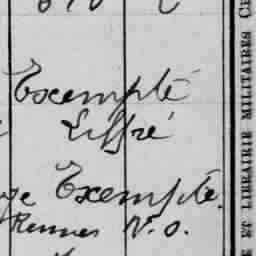 Exempté
Liffré
Exempté.
Rennes N.O.
ET LIBRAIRIE MILITAIRES